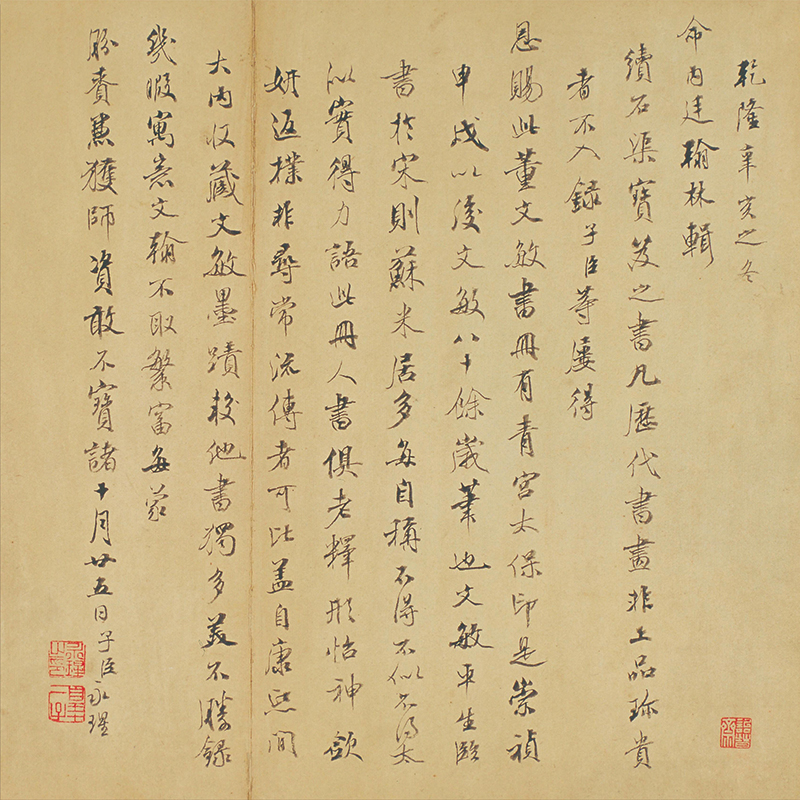 乾隆辛亥之冬
命內廷翰林輯
續石渠寶笈之書凡歷代書畫非上品珍貴
者不入錄子臣等屢得
恩賜此董文敏書冊有青宮太保印是崇禎
申戌以後文敏八十餘歲筆也文敏平生臨
書於宋則蘇米居多每自稱不得不似不得太
似實得力語此冊人書俱老釋形怡神斂
妍返樸非尋常流傳者可比蓋自康熙間
大內收藏文敏墨蹟較他書獨多美不勝錄
幾暇寓意文翰不取繁富每蒙
肦賚蕙獲師資敢不寶諸十月廿五日子臣永瑆